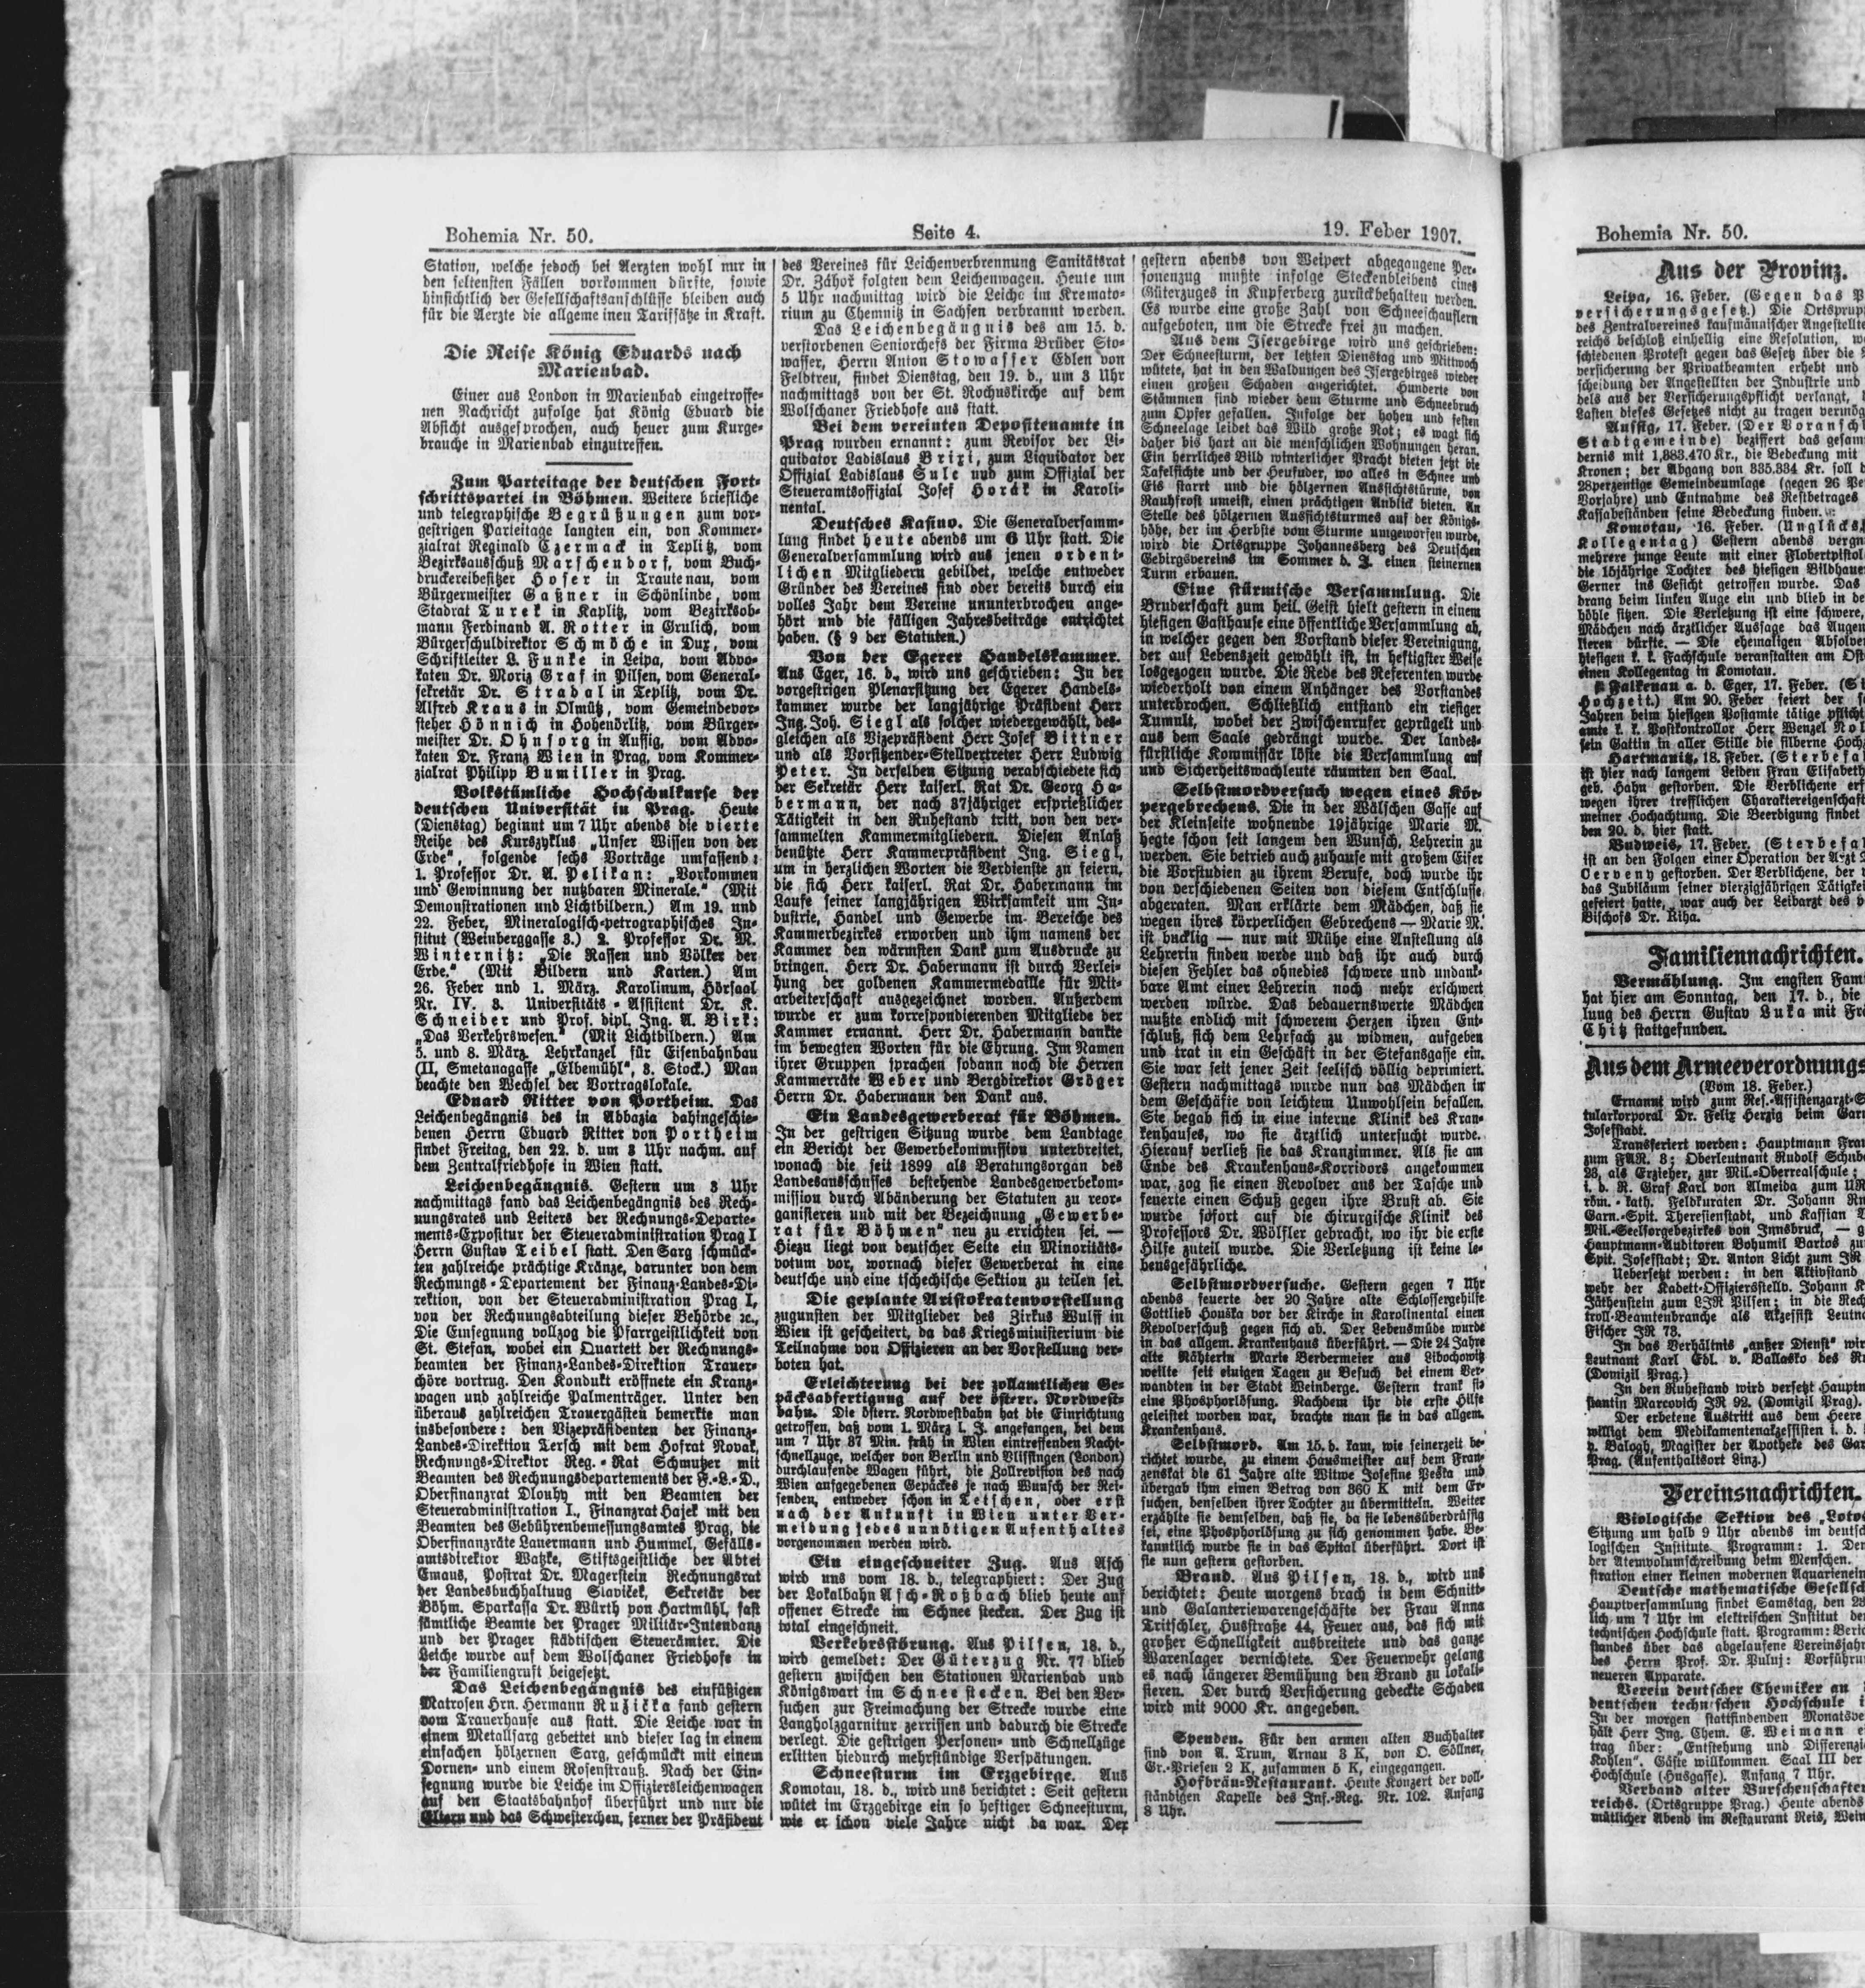 Bohemia Nr. 50.
Seite 4.
19. Feber 1907.
Station, welche jedoch bei Aerzten wohl nur in
den seltensten Fällen vorkommen dürfte, sowie
hinsichtlich der Gesellschaftsanschlüsse bleiben auch
für die Aerzte die allgemeinen Tariffsätze in Kraft.
Die Reise König Eduards nach
Marienbad.
Einer aus London in Marienbad eingetroffe-
nen Nachricht zufolge hat König Eduard die
Absicht ausgesprochen, auch heuer zum Kurge-
brauche in Marienbad einzutreffen.
Zum Parteitage der deutschen Fort-
schrittspartei in Böhmen. Weitere briefliche
und telegraphische Begrüßungen zum vor-
gestrigen Parteitage langten ein, von Kommer-
zialrat Reginald Czermack in Teplitz, vom
Bezirksausschuß Marschendorf, vom Buch-
druckereibesitzer Hofer in Trautenau, vom
Bürgermeister Gaßner in Schönlinde, vom
Stadrat Turek in Kaplitz, vom Bezirksob-
mann Ferdinand A. Rotter in Grulich, vom
Bürgerschuldirektor Schmöche in Dux, vom
Schriftleiter L. Funke in Leipa, vom Advo-
katen Dr. Moriz Graf in Pilsen, vom General-
sekretär Dr. Strabal in Teplitz, vom Dr.
Alfred Kraus in Olmütz, vom Gemeindevor-
steher Hönnich in Hohendrlitz, vom Bürger-
meister Dr. Ohnsorg in Aussig, vom Advo-
katen Dr. Franz Wien in Prag, vom Kommer-
zialrat Philipp Bumiller in Prag.
Volkstümliche Hochschulkurse der
deutschen Universität in Prag. Heute
(Dienstag) beginnt um 7 Uhr abends die vierte
Reihe des Kurszyklus „Unser Wissen von der
Erde“, folgende sechs Vorträge umfassend:
1. Professor Dr. A. Pelikan: „Vorkommen
und Gewinnung der nutzbaren Minerale.“ (Mit
Demonstrationen und Lichtbildern.) Am 19. und
22. Feber, Mineralogisch-petrographisches In-
stitut (Weinberggasse 3.) 2. Professor Dr. M.
Winternitz: „Die Rassen und Völker der
Erde.“ (Mit Bildern und Karten.) Am
26. Feber und 1. März. Karolinum, Hörsaal
Nr. IV. 3. Universitäts-Assistent Dr. K.
Schneider und Prof. dipl. Ing. A. Birk:
„Das Verkehrswesen.“ (Mit Lichtbildern.) Am
5. und 8. März. Lehrkanzel für Eisenbahnbau
(II, Smetanagasse „Elbemühl“, 3. Stock.) Man
beachte den Wechsel der Vortragslokale.
Eduard Ritter von Portheim. Das
Leichenbegängnis des in Abbazia dahingeschie-
denen Herrn Eduard Ritter von Portheim
findet Freitag, den 22. b. um 3 Uhr nachm. auf
dem Zentralfriedhofe in Wien statt.
Leichenbegängnis. Gestern um 3 Uhr
nachmittags fand das Leichenbegängnis des Rech-
nungsrates und Leiters der Rechnungs-Departe-
ments-Expositur der Steueradministration Prag I
Herrn Gustav Teibel statt. Den Sarg schmück-
ten zahlreiche prächtige Kränze, darunter von dem
Rechnungs-Departement der Finanz-Landes-Di-
rektion, von der Steueradministration Prag I,
von der Rechnungsabteilung dieser Behörde ꝛc.,
Die Einsegnung vollzog die Pfarrgeistlichkeit von
St. Stefan, wobei ein Quartett der Rechnungs-
beamten der Finanz-Landes-Direktion Trauer-
chöre vortrug. Den Kondukt eröffnete ein Kranz-
wagen und zahlreiche Palmenträger. Unter den
überaus zahlreichen Trauergästen bemerkte man
insbesondere: den Vizepräsidenten der Finanz-
Landes-Direktion Tersch mit dem Hofrat Novak,
Rechnungs-Direktor Reg.-Rat Schmutzer mit
Beamten des Rechnungsdepartements der F.-L.-D.,
Oberfinanzrat Dlouhy mit den Beamten der
Steueradministration I., Finanzrat Hajek mit den
Beamten des Gebührenbemessungsamtes Prag, die
Oberfinanzräte Lauermann und Hummel, Gefälls-
amtsdirektor Watzke, Stiftsgeistliche der Abtei
Emaus, Postrat Dr. Magerstein Rechnungsrat
der Landesbuchhaltung Slaviček, Sekretär der
Böhm. Sparkassa Dr. Würth von Hartmühl, fast
sämtliche Beamte der Prager Militär-Intendanz
und der Prager städtischen Steuerämter. Die
Leiche wurde auf dem Wolschaner Friedhofe in
der Familiengruft beigesetzt.
Das Leichenbegängnis des einfüßigen
Matrosen Hrn. Hermann Ružička fand gestern
vom Trauerhause aus statt. Die Leiche war in
einem Metallsarg gebettet und dieser lag in einem
einfachen hölzernen Sarg, geschmückt mit einem
Dornen- und einem Rosenstrauß. Nach der Ein-
segnung wurde die Leiche im Offiziersleichenwagen
auf den Staatsbahnhof überführt und nur die
Eltern und das Schwesterchen, ferner der Präsident
des Vereines für Leichenverbrennung Sanitätsrat
Dr. Záhoř folgten dem Leichenwagen. Heute um
5 Uhr nachmittag wird die Leiche im Kremato-
rium zu Chemnitz in Sachsen verbrannt werden.
Das Leichenbegängnis des am 15. b.
verstorbenen Seniorchefs der Firma Brüder Sto-
wasser, Herrn Anton Stowasser Edlen von
Feldtreu, findet Dienstag, den 19. b., um 3 Uhr
nachmittags von der St. Rochuskirche auf dem
Wolschaner Friedhofe aus statt.
Bei dem vereinten Depositenamte in
Prag wurden ernannt: zum Revisor der Li-
quidator Ladislaus Brixi, zum Liquidator der
Offizial Ladislaus Sule und zum Offizial der
Steueramtsoffizial Josef Horák in Karoli-
nental.
Deutsches Kasino. Die Generalversamm-
lung findet heute abends um 6 Uhr statt. Die
Generalversammlung wird aus jenen ordent-
lichen Mitgliedern gebildet, welche entweder
Gründer des Vereines sind oder bereits durch ein
volles Jahr dem Vereine ununterbrochen ange-
hört und die fälligen Jahresbeiträge entrichtet
haben. (§ 9 der Statuten.)
Von der Egerer Handelskammer.
Aus Eger, 16. d., wird uns geschrieben: In der
vorgestrigen Plenarsitzung der Egerer Handels-
kammer wurde der langjährige Präsident Herr
Ing. Joh. Siegl als solcher wiedergewählt, des-
gleichen als Vizepräsident Herr Josef Bittner
und als Vorsitzender-Stellvertreter Herr Ludwig
Peter. In derselben Sitzung verabschiedete sich
der Sekretär Herr kaiserl. Rat Dr. Georg Ha-
bermann, der nach 37jähriger ersprießlicher
Tätigkeit in den Ruhestand tritt, von den ver-
sammelten Kammermitgliedern. Diesen Anlaß
benützte Herr Kammerpräsident Ing. Siegl,
um in herzlichen Worten die Verdienste zu feiern,
die sich Herr kaiserl. Rat Dr. Habermann im
Laufe seiner langjährigen Wirksamkeit um In-
dustrie, Handel und Gewerbe im Bereiche des
Kammerbezirkes erworben und ihm namens der
Kammer den wärmsten Dank zum Ausdrucke zu
bringen. Herr Dr. Habermann ist durch Verlei-
hung der goldenen Kammermedaille für Mit-
arbeiterschaft ausgezeichnet worden. Außerdem
wurde er zum korrespondierenden Mitgliede der
Kammer ernannt. Herr Dr. Habermann dankte
im bewegten Worten für die Ehrung. Im Namen
ihrer Gruppen sprachen sodann noch die Herren
Kammerräte Weber und Bergdirektor Gröger
Herrn Dr. Habermann den Dank aus.
Ein Landesgewerberat für Böhmen.
In der gestrigen Sitzung wurde dem Landtage
ein Bericht der Gewerbekommission unterbreitet,
wonach die seit 1899 als Beratungsorgan des
Landesausschusses bestehende Landesgewerbekom-
mission durch Abänderung der Statuten zu reor-
ganisieren und mit der Bezeichnung „Gewerbe-
rat für Böhmen“ neu zu errichten sei. —
Hiezu liegt von deutscher Seite ein Minoritäts-
votum vor, wornach dieser Gewerberat in eine
deutsche und eine tschechische Sektion zu teilen sei.
Die geplante Aristokratenvorstellung
zugunsten der Mitglieder des Zirkus Wulff in
Wien ist gescheitert, da das Kriegsministerium die
Teilnahme von Offizieren an der Vorstellung ver-
boten hat.
Erleichterung bei der zollamtlichen Ge-
päcksabfertigung auf der österr. Nordwest-
bahn. Die österr. Nordwestbahn hat die Einrichtung
getroffen, daß vom 1. März l. J. angefangen, bei dem
um 7 Uhr 37 Min. früh in Wien eintreffenden Nacht-
schnellzuge, welcher von Berlin und Vlissingen (London)
durchlaufende Wagen führt, die Zollrevision des nach
Wien aufgegebenen Gepäckes je nach Wunsch der Rei-
senden, entweder schon in Tetschen, oder erst
nach der Ankunft in Wien unter Ver-
meidung jedes unnötigen Aufenthaltes
vorgenommen werden wird.
Ein eingeschneiter Zug. Aus Asch
wird uns vom 18. d., telegraphiert: Der Zug
der Lokalbahn Asch-Roßbach blieb heute auf
offener Strecke im Schnee stecken. Der Zug ist
total eingeschneit.
Verkehrsstörung. Aus Pilsen, 18. d.,
wird gemeldet: Der Güterzug Nr. 77 blieb
gestern zwischen den Stationen Marienbad und
Königswart im Schnee stecken. Bei den Ver-
suchen zur Freimachung der Strecke wurde eine
Langholzgarnitur zerrissen und dadurch die Strecke
verlegt. Die gestrigen Personen- und Schnellzüge
erlitten hiedurch mehrstündige Verspätungen.
Schneesturm im Erzgebirge. Aus
Komotau, 18. d., wird uns berichtet: Seit gestern
wütet im Erzgebirge ein so heftiger Schneesturm,
wie er schon viele Jahre nicht da war. Der
gestern abends von Weipert abgegangene Per-
sonenzug mußte infolge Steckenbleibens eines
Güterzuges in Kupferberg zurückbehalten werden.
Es wurde eine große Zahl von Schneeschauflern
aufgeboten, um die Strecke frei zu machen.
Aus dem Isergebirge wird uns geschrieben:
Der Schneesturm, der letzten Dienstag und Mittwoch
wütete, hat in den Waldungen des Isergebirges wieder
einen großen Schaden angerichtet. Hunderte von
Stämmen sind wieder dem Sturme und Schneebruch
zum Opfer gefallen. Infolge der hohen und festen
Schneelage leidet das Wild große Not; es wagt sich
daher bis hart an die menschlichen Wohnungen heran.
Ein herrliches Bild winterlicher Pracht bieten jetzt die
Tafelfichte und der Heufuder, wo alles in Schnee und
Eis starrt und die hölzernen Aussichtstürme, von
Rauhfrost umeist, einen prächtigen Anblick bieten. An
Stelle des hölzernen Aussichtsturmes auf der Königs-
höhe, der im Herbste vom Sturme umgeworfen wurde,
wird die Ortsgruppe Johannesberg des Deutschen
Gebirgsvereins im Sommer d. J. einen steinernen
Turm erbauen.
Eine stürmische Versammlung. Die
Bruderschaft zum heil. Geist hielt gestern in einem
hiesigen Gasthause eine öffentliche Versammlung ab,
in welcher gegen den Vorstand dieser Vereinigung,
der auf Lebenszeit gewählt ist, in heftigster Weise
losgezogen wurde. Die Rede des Referenten wurde
wiederholt von einem Anhänger des Vorstandes
unterbrochen. Schließlich entstand ein riesiger
Tumult, wobei der Zwischenrufer geprügelt und
aus dem Saale gedrängt wurde. Der landes-
fürstliche Kommissär löste die Versammlung auf
und Sicherheitswachleute räumten den Saal.
Selbstmordversuch wegen eines Kör-
pergebrechens. Die in der Wälschen Gasse auf
der Kleinseite wohnende 19jährige Marie M.
hegte schon seit langem den Wunsch, Lehrerin zu
werden. Sie betrieb auch zuhause mit großem Eifer
die Vorstudien zu ihrem Berufe, doch wurde ihr
von verschiedenen Seiten von diesem Entschlusse
abgeraten. Man erklärte dem Mädchen, daß sie
wegen ihres körperlichen Gebrechens — Marie M.
ist bucklig — nur mit Mühe eine Anstellung als
Lehrerin finden werde und daß ihr auch durch
diesen Fehler das ohnedies schwere und undank-
bare Amt einer Lehrerin noch mehr erschwert
werden würde. Das bedauernswerte Mädchen
mußte endlich mit schwerem Herzen ihren Ent-
schluß, sich dem Lehrfach zu widmen, aufgeben
und trat in ein Geschäft in der Stefansgasse ein.
Sie war seit jener Zeit seelisch völlig deprimiert.
Gestern nachmittags wurde nun das Mädchen in
dem Geschäfte von leichtem Unwohlsein befallen.
Sie begab sich in eine interne Klinik des Kran-
kenhauses, wo sie ärztlich untersucht wurde.
Hierauf verließ sie das Kranzimmer. Als sie am
Ende des Krankenhaus-Korridors angekommen
war, zog sie einen Revolver aus der Tasche und
feuerte einen Schuß gegen ihre Brust ab. Sie
wurde sofort auf die chirurgische Klinik des
Professors Dr. Wölfler gebracht, wo ihr die erste
Hilfe zuteil wurde. Die Verletzung ist keine le-
bensgefährliche.
Selbstmordversuche. Gestern gegen 7 Uhr
abends feuerte der 20 Jahre alte Schlossergehilfe
Gottlieb Houška vor der Kirche in Karolinental einen
Revolverschuß gegen sich ab. Der Lebensmüde wurde
in das allgem. Krankenhaus überführt. — Die 24 Jahre
alte Nähterin Marie Berdermeier aus Libochowitz
weilte seit einigen Tagen zu Besuch bei einem Ver-
wandten in der Stadt Weinberge. Gestern trank sie
eine Phosphorlösung. Nachdem ihr die erste Hilfe
geleistet worden war, brachte man sie in das allgem.
Krankenhaus.
Selbstmord. Am 15. d. kam, wie seinerzeit be-
richtet wurde, zu einem Hausmeister auf dem Fran-
zenskai die 61 Jahre alte Witwe Josefine Pešta und
übergab ihm einen Betrag von 360 K mit dem Er-
suchen, denselben ihrer Tochter zu übermitteln. Weiter
erzählte sie demselben, daß sie, da sie lebensüberdrüssig
sei, eine Phosphorlösung zu sich genommen habe. Be-
kanntlich wurde sie in das Spital überführt. Dort ist
sie nun gestern gestorben.
Brand. Aus Pilsen, 18. d., wird uns
berichtet: Heute morgens brach in dem Schnitt-
und Galanteriewarengeschäfte der Frau Anna
Tritschler, Husstraße 44, Feuer aus, das sich mit
großer Schnelligkeit ausbreitete und das ganze
Warenlager vernichtete. Der Feuerwehr gelang
es nach längerer Bemühung den Brand zu lokali-
sieren. Der durch Versicherung gedeckte Schaden
wird mit 9000 Kr. angegeben.
Spenden. Für den armen alten Buchhalter
sind von A. Trum, Arnau 3 K, von O. Söllner,
Gr.-Priesen 2 K, zusammen 5 K, eingegangen.
Hofbräu-Restaurant. Heute Konzert der voll-
ständigen Kapelle des Inf.-Reg. Nr. 102. Anfang
8 Uhr.
Bohemia Nr. 50.
Aus der Provinz.
Leipa, 16. Feber. (Gegen das
versicherungsgesetz.) Die Ortsgrupp
des Zentralvereines kaufmännischer Angestellte
reichs beschloß einhellig eine Resolution,
schiedenen Protest gegen das Gesetz über die
versicherung der Privatbeamten erhebt und
scheidung der Angestellten der Industrie und
dels aus der Versicherungspflicht verlangt,
Lasten dieses Gesetzes nicht zu tragen vermög
Aussig, 17. Feber. (Der Voranschl
Stadtgemeinde) beziffert das gesam
dernis mit 1,883.470 Kr., die Bedeckung mit
Kronen; der Abgang von 335.334 Kr. soll
28perzentige Gemeindeumlage (gegen 26 Pe
Vorjahre) und Entnahme des Restbetrages
Kassabeständen seine Bedeckung finden.
Komotau, 16. Feber. (Unglücks
Kollegentag) Gestern abends vergn
mehrere junge Leute mit einer Flobertpistol
die 15jährige Tochter des hiesigen Bildhaue
Gerner ins Gesicht getroffen wurde. Das
drang beim linken Auge ein und blieb in de
höhle sitzen. Die Verletzung ist eine schwere,
Mädchen nach ärztlicher Aussage das Augen
lieren dürfte. — Die ehemaligen Absolve
hiesigen k. k. Fachschule veranstalten am Ost
einen Kollegentag in Komotau.
Falkenau a. d. Eger, 17. Feber. (Si
Hochzeit.) Am 20. Feber feiert der
Jahren beim hiesigen Postamte tätige pflicht
amte k. k. Postkontrollor Herr Wenzel
sein Gattin in aller Stille die silberne Hoch
Hartmanitz, 18. Feber. (Sterbefa
ist hier nach langem Leiden Frau Elisabeth
geb. Hahn gestorben. Die Verblichene
wegen ihrer trefflichen Charaktereigenschaft
meiner Hochachtung. Die Beerdigung findet
den 20. d. hier statt.
Budweis, 17. Feber. (Sterbefa
ist an den Folgen einer Operation der Arzt
Cerveny gestorben. Der Verblichene, der
das Jubiläum seiner vierzigjährigen Tätigkei
gefeiert hatte, war auch der Leibarzt des
Bischofs Dr. Říha.
Familiennachrichten.
Vermählung. Im engsten Fam
hat hier am Sonntag, den 17. d., die
lung des Herrn Gustav Luka mit Fr
Chitz stattgefunden.
Aus dem Armeeverordnungs
(Vom 18. Feber.)
Ernannt wird zum Res.-Assistenzarzt-S
tularkorporal Dr. Felix Herzig beim Garn
Josefstadt.
Transferiert werden: Hauptmann Fra
zum FAR. 8; Oberleutnant Rudolf Schub
28, als Erzieher, zur Mil.-Oberrealschule;
i. d. R. Graf Karl von Almeida zum
röm.-kath. Feldkuraten Dr. Johann
Garn.-Spit. Theresienstadt, und Kassian
Mil.-Seelsorgebezirkes von Innsbruck, —
Hauptmann-Auditoren Bohumil Bartos
Spit. Josefstadt; Dr. Anton Licht zum IR
Uebersetzt werden: in den Aktivstand
wehr der Kadett-Offiziersstellv. Johann
Jäthenstein zum LJR Pilsen; in die Rech
troll-Beamtenbranche als Akzessist Leutn
Fischer IR 73.
In das Verhältnis „außer Dienst“ wir
Leutnant Karl Edl. v. Ballasko des
(Domizil Prag.)
In den Ruhestand wird versetzt Hauptm
stantin Marcovich IR 92. (Domizil Prag).
Der erbetene Austritt aus dem Heere
willigt dem Medikamentenakzessisten i. d.
v. Balogh, Magister der Apotheke des Gar
Prag. (Aufenthaltsort Linz.)
Vereinsnachrichten.
Biologische Sektion des „Lotos
Sitzung um halb 9 Uhr abends im deutsch
logischen Institute. Programm: 1.
der Atemvolumschreibung beim Menschen.
stration einer kleinen modernen Aquarienein
Deutsche mathematische Gesellsch
Hauptversammlung findet Samstag, den
lich um 7 Uhr im elektrischen Institut der
technischen Hochschule statt. Programm: Beric
standes über das abgelaufene Vereinsjahr
des Herrn Prof. Dr. Puluj: Vorführu
neueren Apparate.
Verein deutscher Chemiker an
deutschen technischen Hochschule
In der morgen stattfindenden Monatsve
hält Herr Ing. Chem. E. Weimann
trag über: „Entstehung und Differenzi
Kohlen“. Gäste willkommen. Saal III der
Hochschule (Husgasse). Anfang 7 Uhr.
Verband alter Burschenschafter
reichs. (Ortsgruppe Prag.) Heute abends
mütlicher Abend im Restaurant Reis,